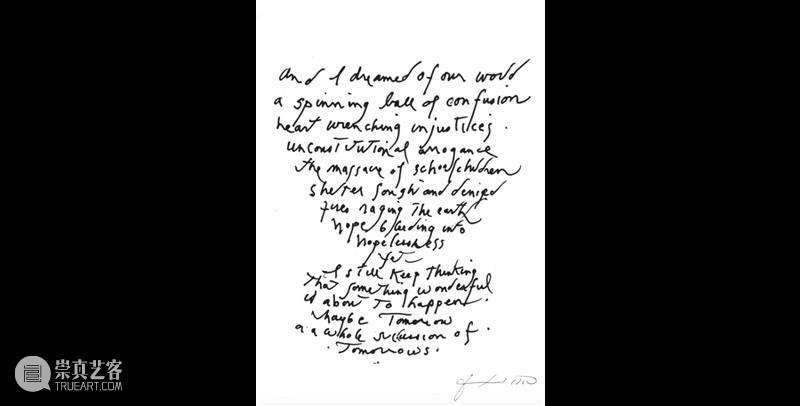 and I dreamed of our world
a spinning ball of confusion
heart wrenching injustices.
unconstitutional arrogance
the massacre of schoolchildren
shelter sought and denied
fires raging the earth
hope bleeding into
hopelessness
yet
I still keep thinking
that something wonderful
is about to happen.
maybe Tomorrow
a a whole succession of.
Tomorrows.
崇真艺客
TRUEART.COM